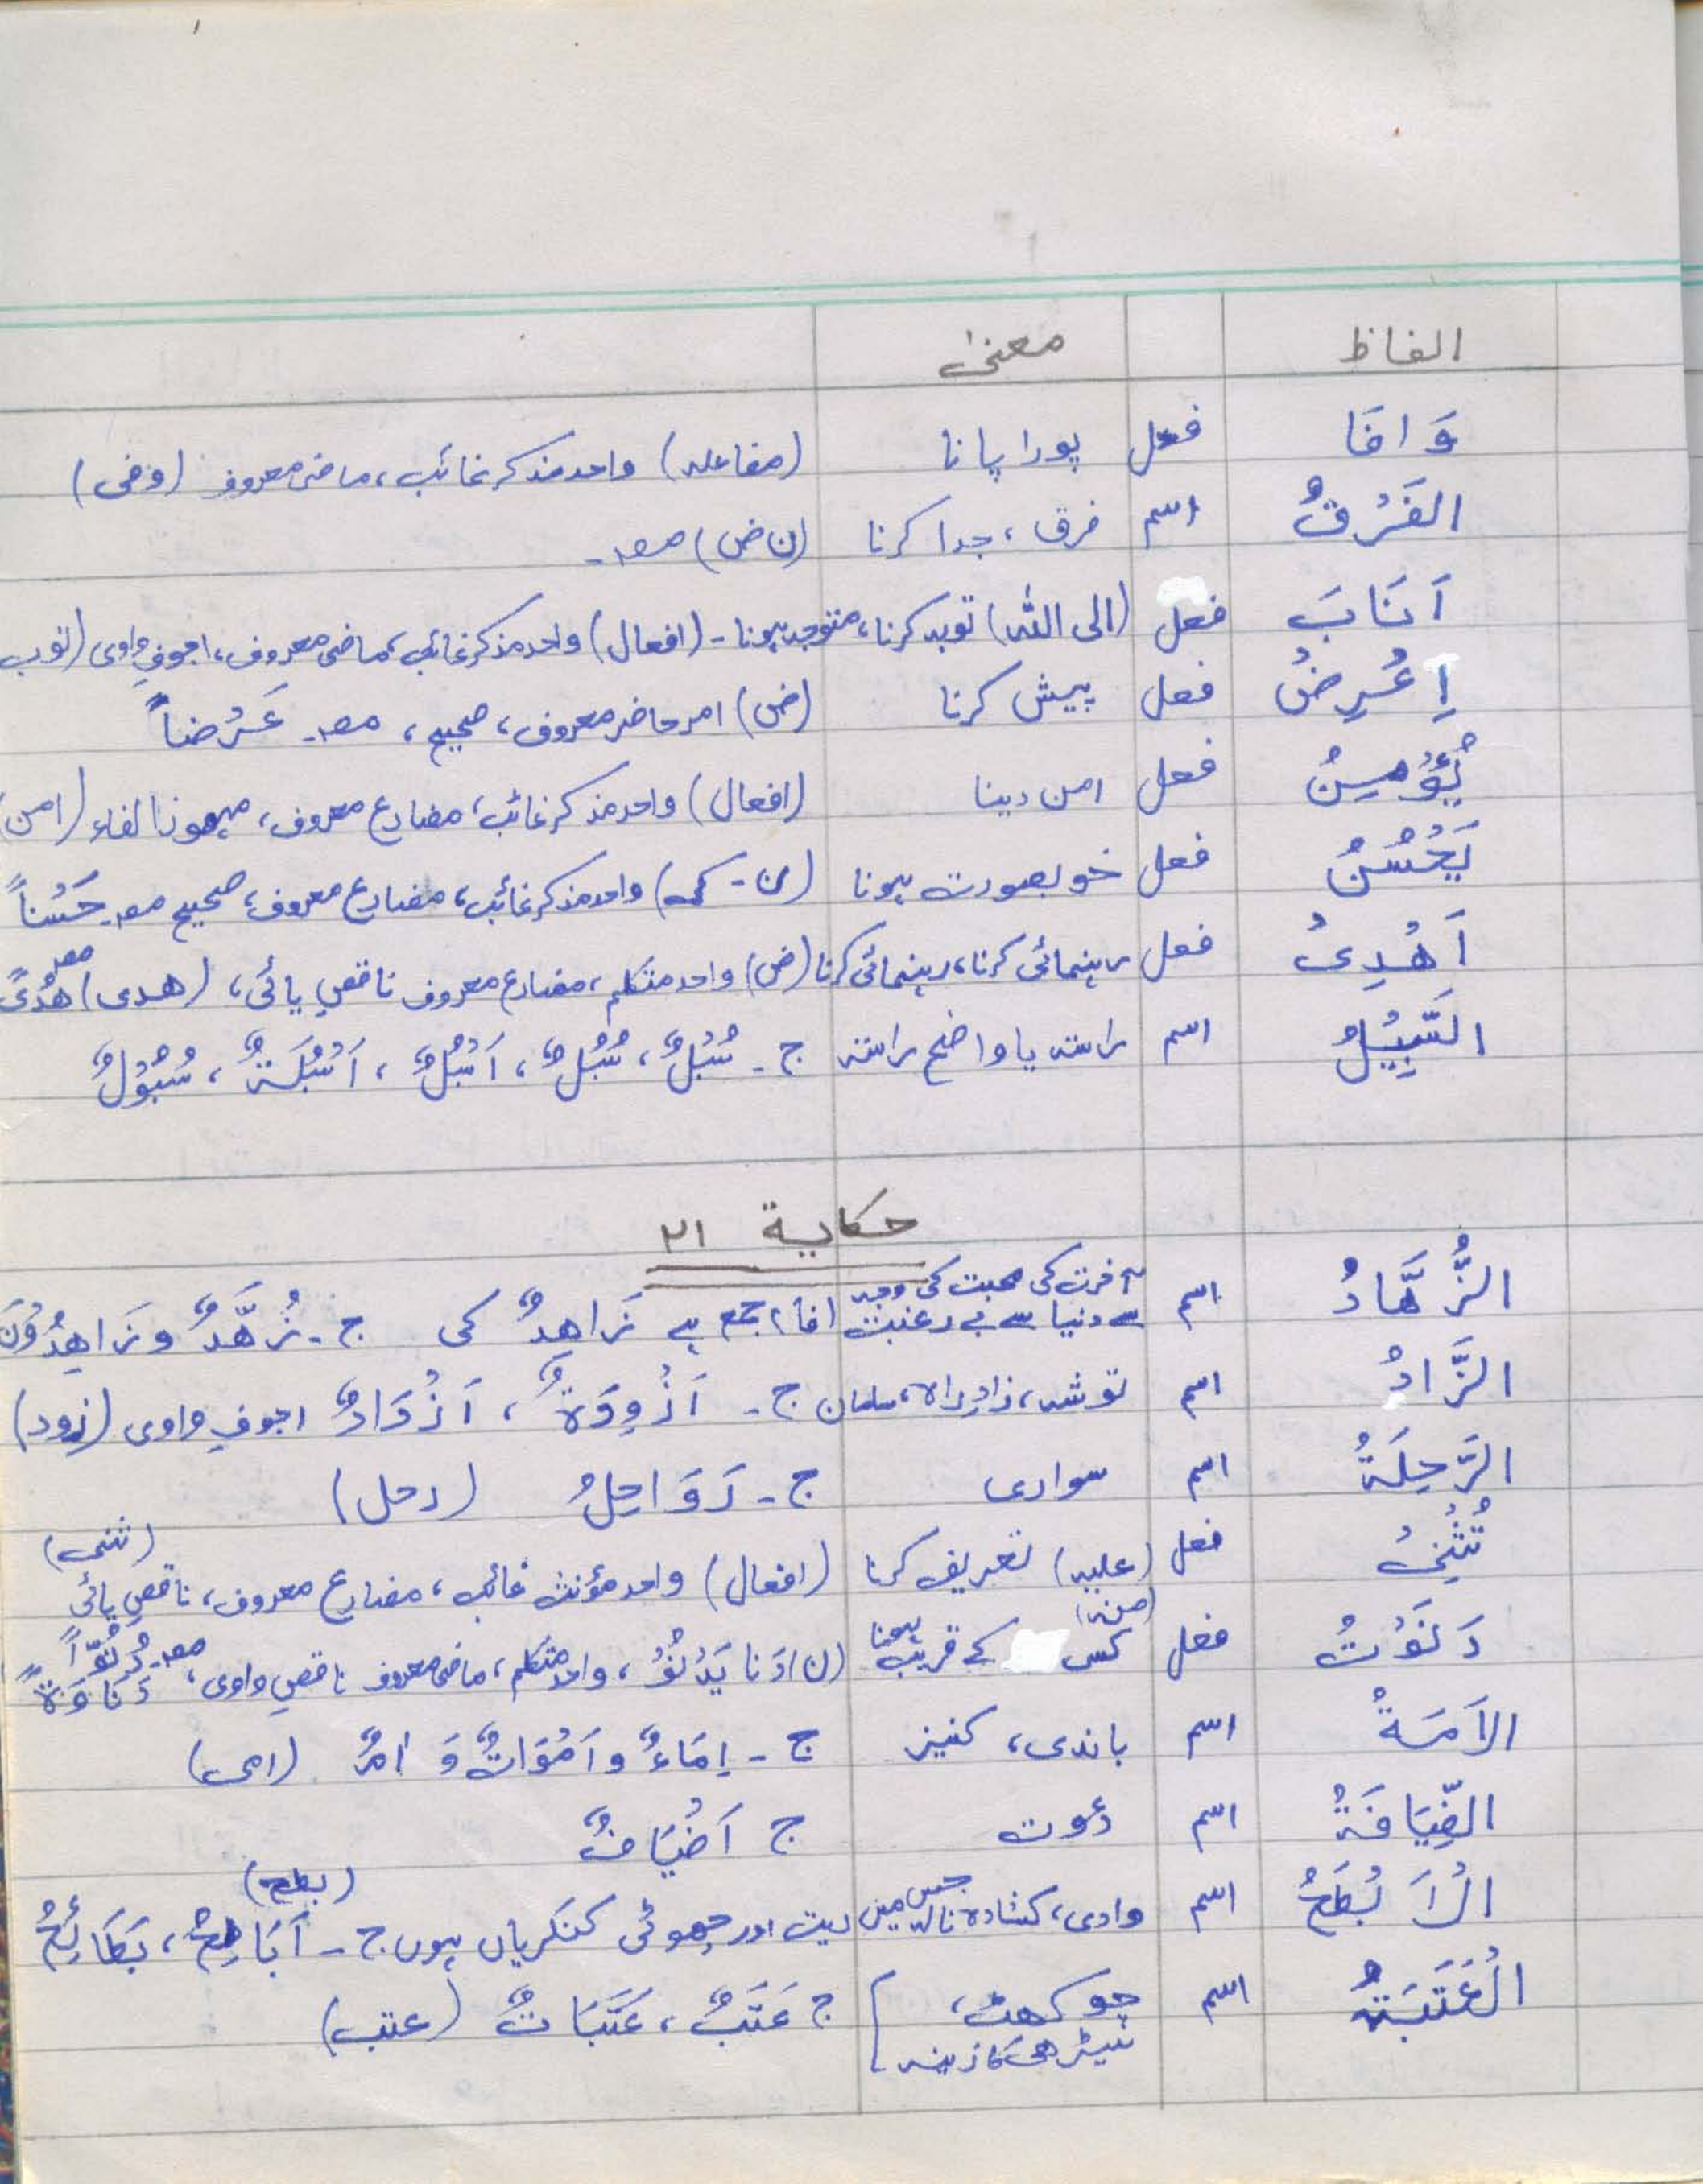 الفاظ معنیٰ
وَافَا فعل پورا پانا (مفاعلہ) واحد مذکر غائب، ماضی معروف (وفی)
الفَرْقُ اسم فرق، جدا کرنا (ن ض) مصد۔
اَنَابَ فعل (الی اللہ) توبہ کرنا، متوجہ ہونا۔ (افعال) واحد مذکر غائب، ماضی معروف، اجوفِ واوی (نوب
اِعْرِضْ فعل پیش کرنا (ض) امر حاضر معروف، صحیح، مصد۔ عَرْضاً
يُؤْمِنُ فعل امن دینا (افعال) واحد مذکر غائب، مضارع معروف، مہموز الفاء (امن)
يَحْسُنُ فعل خوبصورت ہونا (ن۔ ک) واحد مذکر غائب، مضارع معروف، صحیح مصد۔ حَسْناً
اَهْدِیْ فعل رہنمائی کرنا، رہنمائی کرنا (ض) واحد متکلم، مضارع معروف ناقصِ یائی، (ھدی) مصد هُدًی
السَّبِيْلُ اسم راستہ یا واضح راستہ ج۔ سُبُلٌ، سُبْلٌ، اَسْبُلٌ، اَسْبُلَةٌ، سُبُوْلٌ
حکایة ۲۱
الزُّهَّادُ اسم آخرت کی محبت کی وجہ سے دنیا سے بے رغبت (فا) جمع ہے زَاهِدٌ کی ج۔ زُهَّدٌ و زَاهِدُوْنَ
الزَّادُ اسم توشہ، زادِ راہ، سامان ج۔ اَزْوِدَةٌ، اَزْوَادٌ اجوفِ واوی (زود)
الرَّحِلَةُ اسم سواری ج۔ رَوَاحِلُ (رحل)
تُثْنِیْ فعل (علیہ) تعریف کرنا (افعال) واحد مؤنث غائب، مضارع معروف، ناقصِ یائی (ثنی)
دَنَوْتُ فعل (منہ) کسی کے قریب ہونا (ن) دَنَا يَدْنُوْ، واحد متکلم، ماضی معروف ناقصِ واوی، مصد۔ دُنُوّاً دَنَاوَةً
الاَمَةُ اسم باندی، کنیز ج۔ اِمَاءٌ و اَمْوَاتٌ وَ اٰمٌ (امی)
الضِّيَافَةُ اسم دعوت ج اَضْيَافٌ
الْاَبْطَحُ اسم وادی، کشادہ نالہ جس میں ریت اور چھوٹی کنکریاں ہوں ج۔ اَبَاطِحُ، بَطَائِحُ (بطح)
الْعَتَبَةُ اسم چوکھٹ، سیڑھی کا زینہ ج عَتَبٌ، عَتَبَاتٌ (عتب)